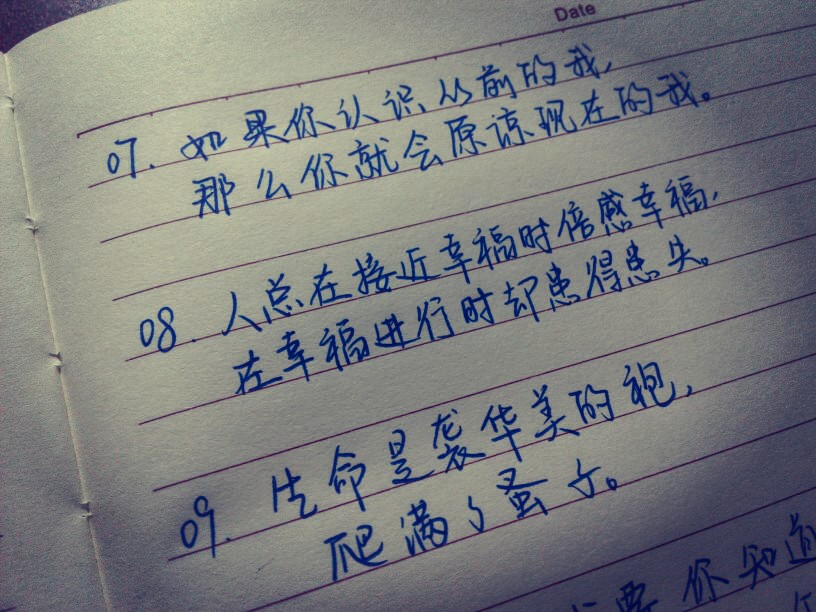 Date
07. 如果你认识从前的我,
那么你就会原谅现在的我。
08. 人总在接近幸福时倍感幸福,
在幸福进行时却患得患失。
09. 生命是袭华美的袍,
爬满了蚤子。
要你知道